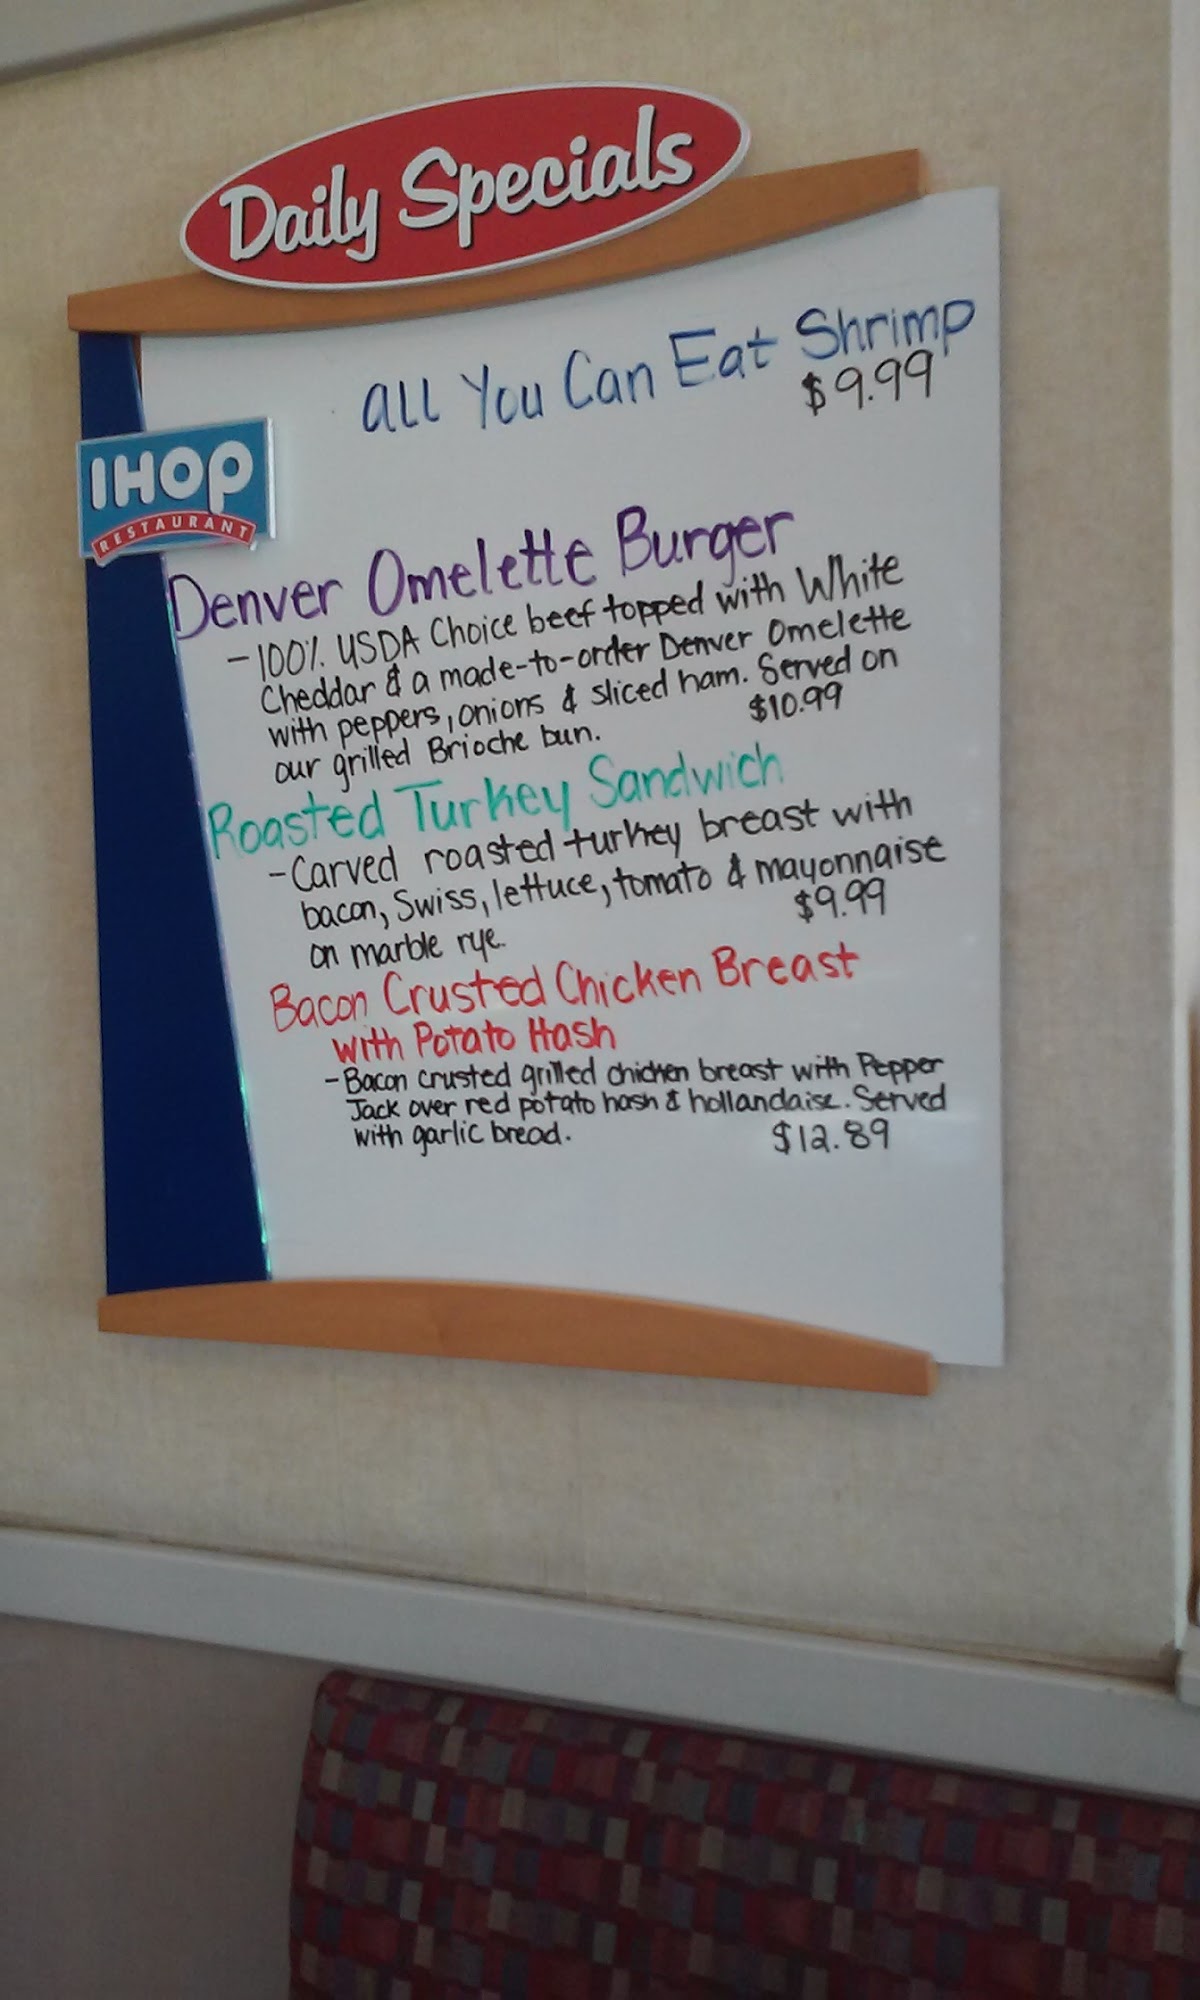 Daily Specials
all You Can Eat Shrimp
$9.99
IHOP
RESTAURANT
Denver Omelette Burger
-100% USDA Choice beef topped with White
Cheddar & a made-to-order Denver Omelette
with peppers, onions & sliced ham. Served on
our grilled Brioche bun. $10.99
Roasted Turkey Sandwich
-Carved roasted turkey breast with
bacon, Swiss, lettuce, tomato & mayonnaise
on marble rye. $9.99
Bacon Crusted Chicken Breast
with Potato Hash
-Bacon crusted grilled chicken breast with Pepper
Jack over red potato hash & hollandaise. Served
with garlic bread. $12.89